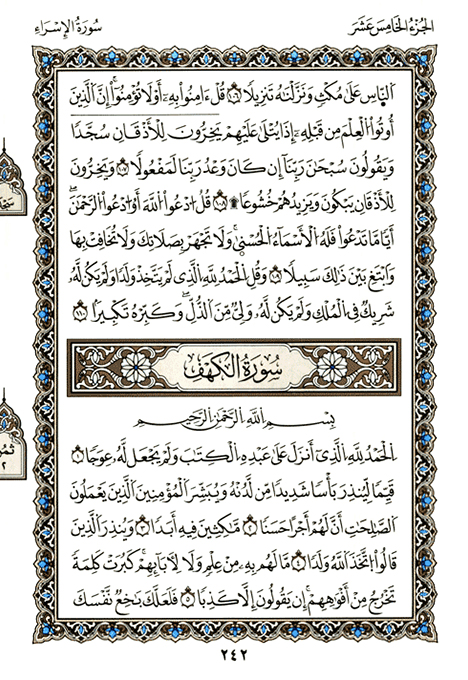 الجزء الخامس عشر
سورة الإسراء
النَّاسِ عَلَىٰ مُكْثٍ وَنَزَّلْنَاهُ تَنزِيلًا ١٠٦ قُلْ ءَامِنُوا۟ بِهِۦٓ أَوْ لَا تُؤْمِنُوٓا۟ إِنَّ الَّذِينَ
أُوتُوا۟ الْعِلْمَ مِن قَبْلِهِۦٓ إِذَا يُتْلَىٰ عَلَيْهِمْ يَخِرُّونَ لِلْأَذْقَانِ سُجَّدًا
وَيَقُولُونَ سُبْحَٰنَ رَبِّنَآ إِن كَانَ وَعْدُ رَبِّنَا لَمَفْعُولًا ١٠٨ وَيَخِرُّونَ
لِلْأَذْقَانِ يَبْكُونَ وَيَزِيدُهُمْ خُشُوعًا ۩ ١٠٩ قُلِ ادْعُوا۟ اللَّهَ أَوِ ادْعُوا۟ الرَّحْمَٰنَ
أَيًّا مَّا تَدْعُوا۟ فَلَهُ الْأَسْمَآءُ الْحُسْنَىٰ وَلَا تَجْهَرْ بِصَلَاتِكَ وَلَا تُخَافِتْ بِهَا
وَابْتَغِ بَيْنَ ذَٰلِكَ سَبِيلًا ١١٠ وَقُلِ الْحَمْدُ لِلَّهِ الَّذِى لَمْ يَتَّخِذْ وَلَدًا وَلَمْ يَكُن لَّهُۥ
شَرِيكٌ فِى الْمُلْكِ وَلَمْ يَكُن لَّهُۥ وَلِىٌّ مِّنَ الذُّلِّ وَكَبِّرْهُ تَكْبِيرًا ١١١
سُورَةُ الْكَهْفِ
بِسْمِ اللَّهِ الرَّحْمَٰنِ الرَّحِيمِ
الْحَمْدُ لِلَّهِ الَّذِىٓ أَنزَلَ عَلَىٰ عَبْدِهِ الْكِتَٰبَ وَلَمْ يَجْعَل لَّهُۥ عِوَجًا ١
قَيِّمًا لِّيُنذِرَ بَأْسًا شَدِيدًا مِّن لَّدُنْهُ وَيُبَشِّرَ الْمُؤْمِنِينَ الَّذِينَ يَعْمَلُونَ
الصَّٰلِحَٰتِ أَنَّ لَهُمْ أَجْرًا حَسَنًا ٢ مَّٰكِثِينَ فِيهِ أَبَدًا ٣ وَيُنذِرَ الَّذِينَ
قَالُوا۟ اتَّخَذَ اللَّهُ وَلَدًا ٤ مَّا لَهُم بِهِۦ مِنْ عِلْمٍ وَلَا لِأَبَآئِهِمْ كَبُرَتْ كَلِمَةً
تَخْرُجُ مِنْ أَفْوَٰهِهِمْ إِن يَقُولُونَ إِلَّا كَذِبًا ٥ فَلَعَلَّكَ بَٰخِعٌ نَّفْسَكَ
٢٤٢